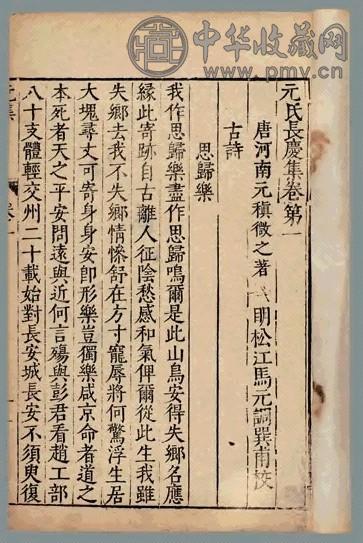 中华收藏网
www.pmv.cn
元氏長慶集卷第一
唐河南元稹微之著 明松江馬元調巽甫校
古詩
思歸樂
我作思歸樂盡作思歸鳴爾是此山鳥安得失鄉名應
緣此寄跡自古離人征陰愁感和氣俾爾從此生我雖
失鄉去我不失鄉情慘舒在方寸寵辱將何驚浮生居
大塊尋丈可寄身身安即形樂豈獨樂咸京命者道之
本死者天之平安問遠與近何言殤與彭君看趙工部
八十支體輕交州二十載始對長安城長安不須臾復